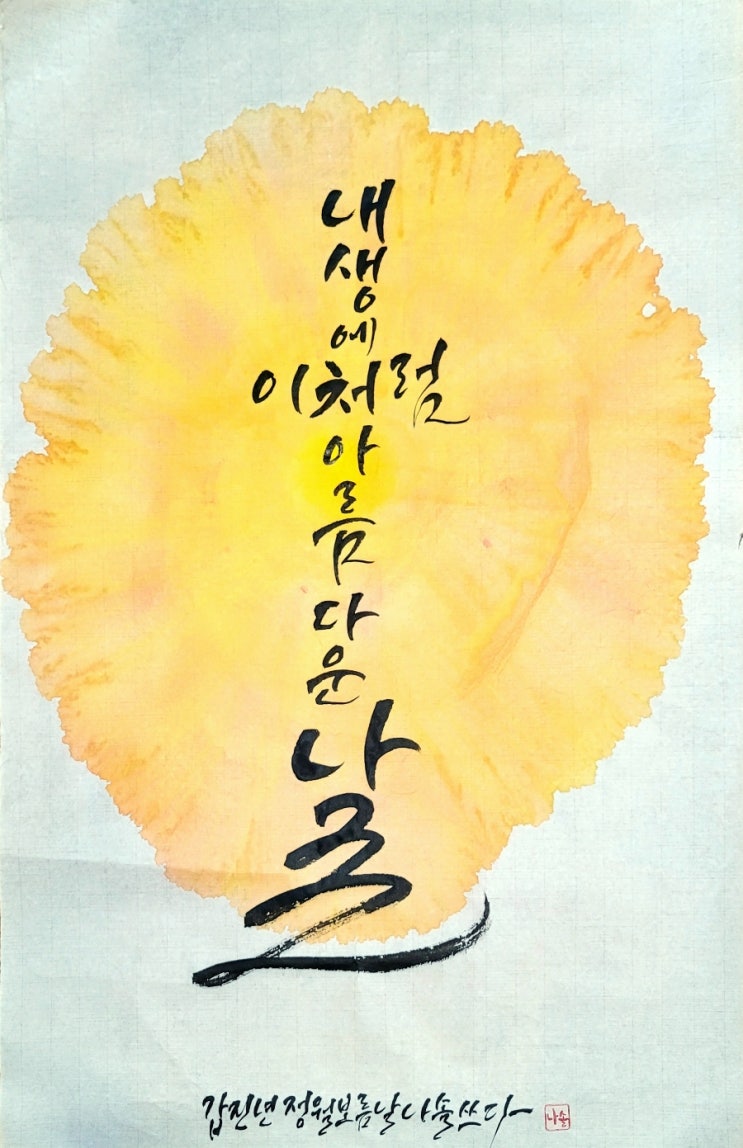 내
생
에
이처럼
아
름
다
운
날
갑진년 정월보름날 나솔 쓰다
나솔